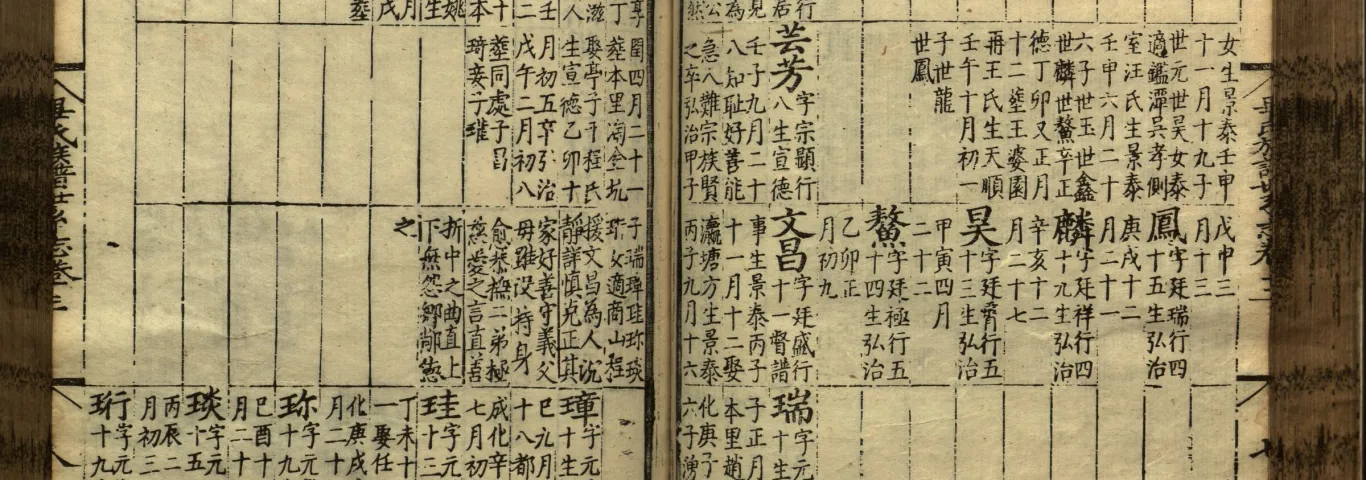 女生景泰壬申
十一月十九子
世元世昊女泰
適鑑潭吳孝側
室汪氏生景泰
壬申六月二十
六子世玉世鑫
世麟世鰲卒正
德丁卯又正月
十二塟王婆園
再王氏生天順
壬午十月初一
子世龍
世鳳
芸芳字宗顯行
八生宣德
壬子九月二十
八知恥好善能
急八難宗族賢
之卒弘治甲子
戊申三
月十三
鳳字廷瑞行四
十五生弘治
庚戌十二
月二十一
麟字廷祥行四
十九生弘治
辛亥十二
月二十七
昊字廷膂行五
十三生弘治
甲寅四月
二十二
鰲字廷極行五
十四生弘治
乙卯正
月初九
文昌字廷盛行
十一督譜
事生景泰丙子
十一月十二娶
瀛塘方生景泰
丙子九月十六
瑞字元
十生
子正月
本里趙
化庚子
六子湧
閏四月二十一
塟本里湖金坑
娶亭子干程氏
生宣德乙卯十
月初五卒弘治
戊午二月初八
塟同處子昌
琦妾子璀
子瑞璋珪珎琰
珩女適商山程
援文昌為人沉
靜詳慎克正其
家好善守義父
母雖没持身
恭撫二弟極
慈愛之言直善
折中之曲直上
下無怨鄉鄰德
之
璋字元
十生
巳元月
十八都
成化辛
七月初
珪字元
十三
丁未十
一娶任
化庚戌
月二十
珎字元
十九
己酉十
月二十
琰字元
十五
丙辰二
月初三
珩字元
十九
畢氏族譜世系志卷三